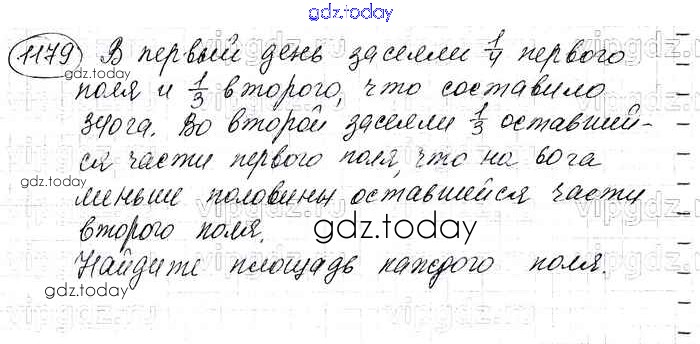 gdz.today
1179 В первый день засеяли 1/4 первого
поля и 1/3 второго, что составило
340га. Во второй засеяли 1/3 оставшей-
ся части первого поля, что на 60га
gdz.today
меньше половины оставшейся части
gdz.today
второго поля.
Найдите площадь каждого поля.
gdz.today